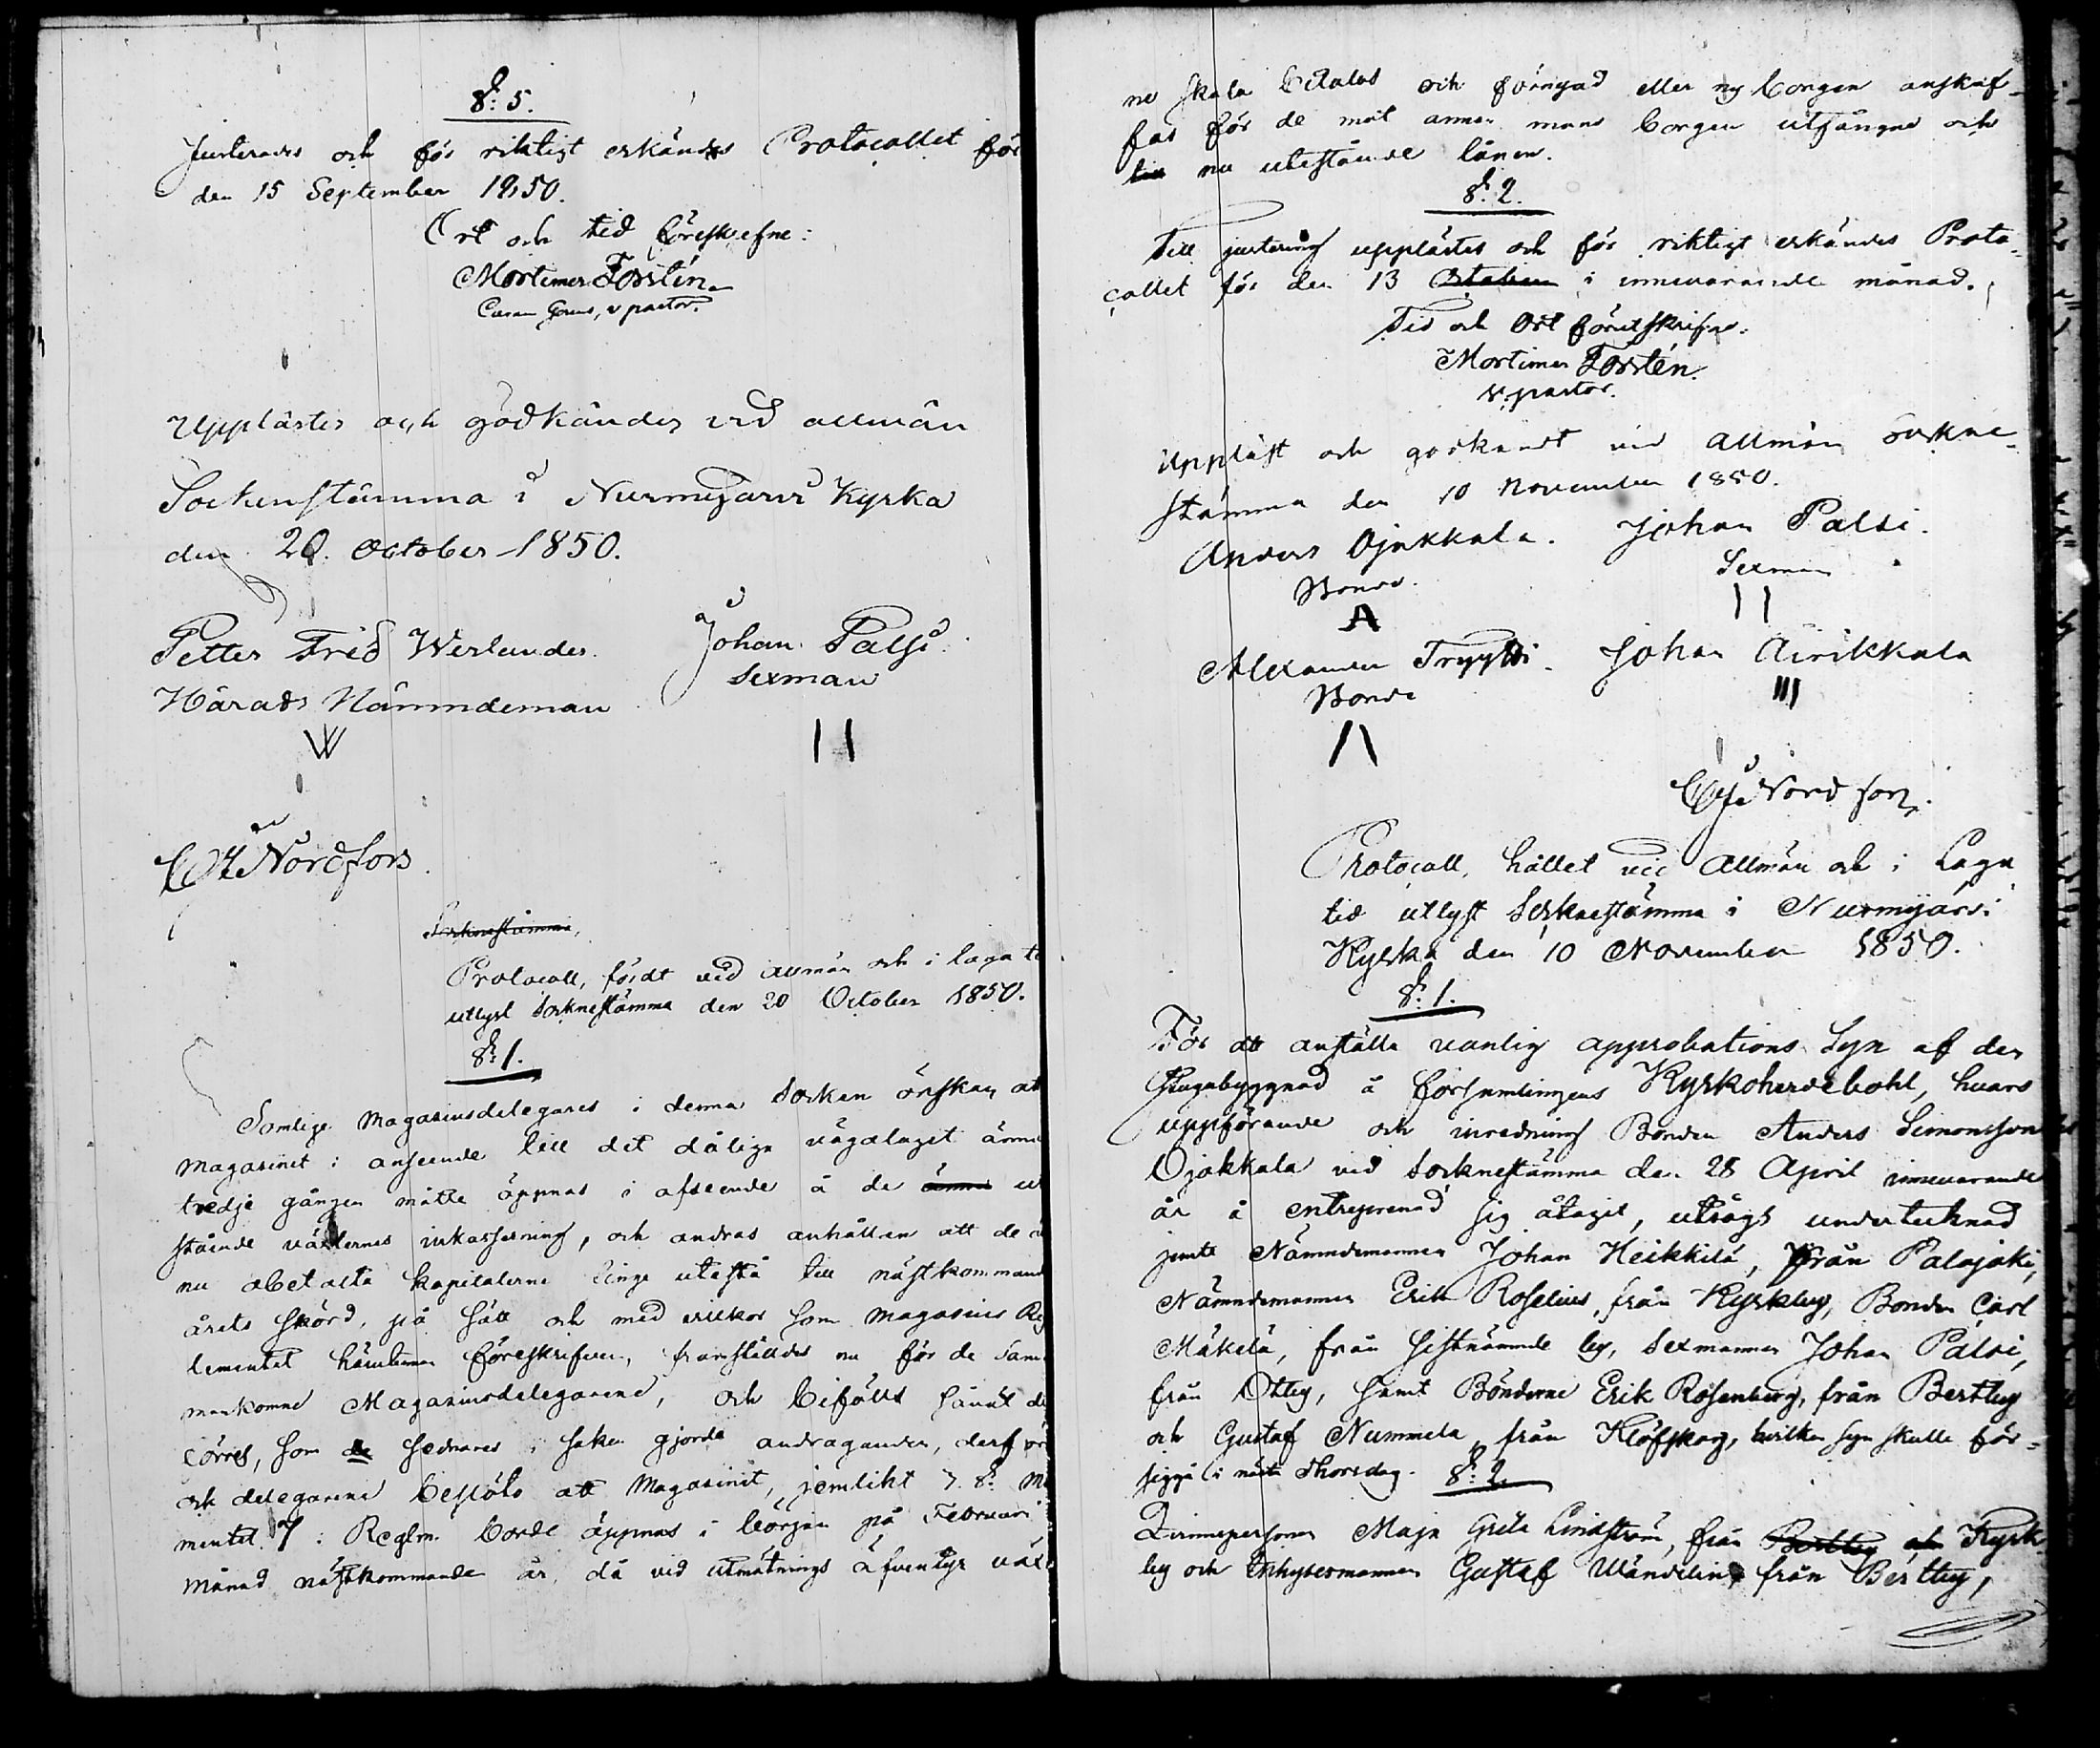 §: 5.
Justerades och för riktigt erkändes Protocollet för
den 15 September 1850.
Ort och tid föreskrefne:
Mortimer Forstén
v pastor.
Upplästes och godkändes vid allmän
Sockenstämma i Nurmijärvi Kyrka
den 20. October 1850.
Petter Fred Werlander. Johan Palsi.
Härads Nämndeman Sexman
W II
Nordfors.
Socknestämma,
Protocoll, fördt vid allmän och i laga ti
utlyst Socknestämma den 20 October 1850.
§: 1.
Somlige Magasinsdelegares i denna Socken önskan at
Magasinet i anseende till det dåliga vägalaget ännu
tredje gången måtte öppnas i afseende å de ännu ut
stående växternes inkassering, och andras anhållan att de
nu obetalta kapitalerne finge utestå till nästkommand
årets skörd, på sätt och med vilkor som Magasins Reg
lementet härutinnan föreskrifver, framställdes nu för de sam
mankomne Magasinsdelegarene, och bifölls såväl de
förres, som de sednares i saken gjorda andraganden, derföre
och delegarene beslöto att Magasinet, jemlikt 7. §. Mo
mentet 7 i Reglm. borde öppnas i början på Februari
månad nästkommande år, då vid utmätnings äfventyr väx
ne skola betalas och förnyad eller ny borgen anskaf-
fas för de mot annan mans borgen utgångne och
till nu utestående lånen.
§: 2.
Till justering upplästes och för riktigt erkändes Proto-
collet för den 13 October i innevarande månad.
Tid och Ort föreskrifne.
Mortimer Forstén.
v. pastor.
Uppläst och godkändt vid allmän Sockne-
stämma den 10 November 1850.
Anders Ojakkala. Johan Palsi.
Bonde. Sexman
A II
Alexander Tryytti. Johan Äirikkala
Bonde III
/\
Nordfors.
Protocoll, hållet vid Allmän och i Laga
tid utlyst Socknestämma i Nurmijärvi
Kyrka den 10 November 1850.
§: 1.
För att anställa vanlig approbations Syn af den
Stugubyggnad å församlingens Kyrkoherdebohl, hvars
uppförande och inredning Bonden Anders Simonsson
Ojakkala vid Socknestämma den 28 April innevarande
år å entreprenad sig åtagit, utsågs undertecknad
jemte Nämndemannen Johan Heikkilä, från Palojoki,
Nämndemannen Erik Roselius, från Kyrkby, Bonden Carl
Mäkelä, från sistnämnde by, Sexmannen Johan Palsi,
från Ottby, samt Bönderne Erik Rosenberg, från Bertby
och Gustaf Nummela från Klöfskog, hvilken syn skulle för-
siggå i nästa Thorsdag. §: 2.
Qvinnspersonen Maja Greta Lindström, från Bertby och Kyrk
by och Inhysesmannen Gustaf Wändelin från Bertby,